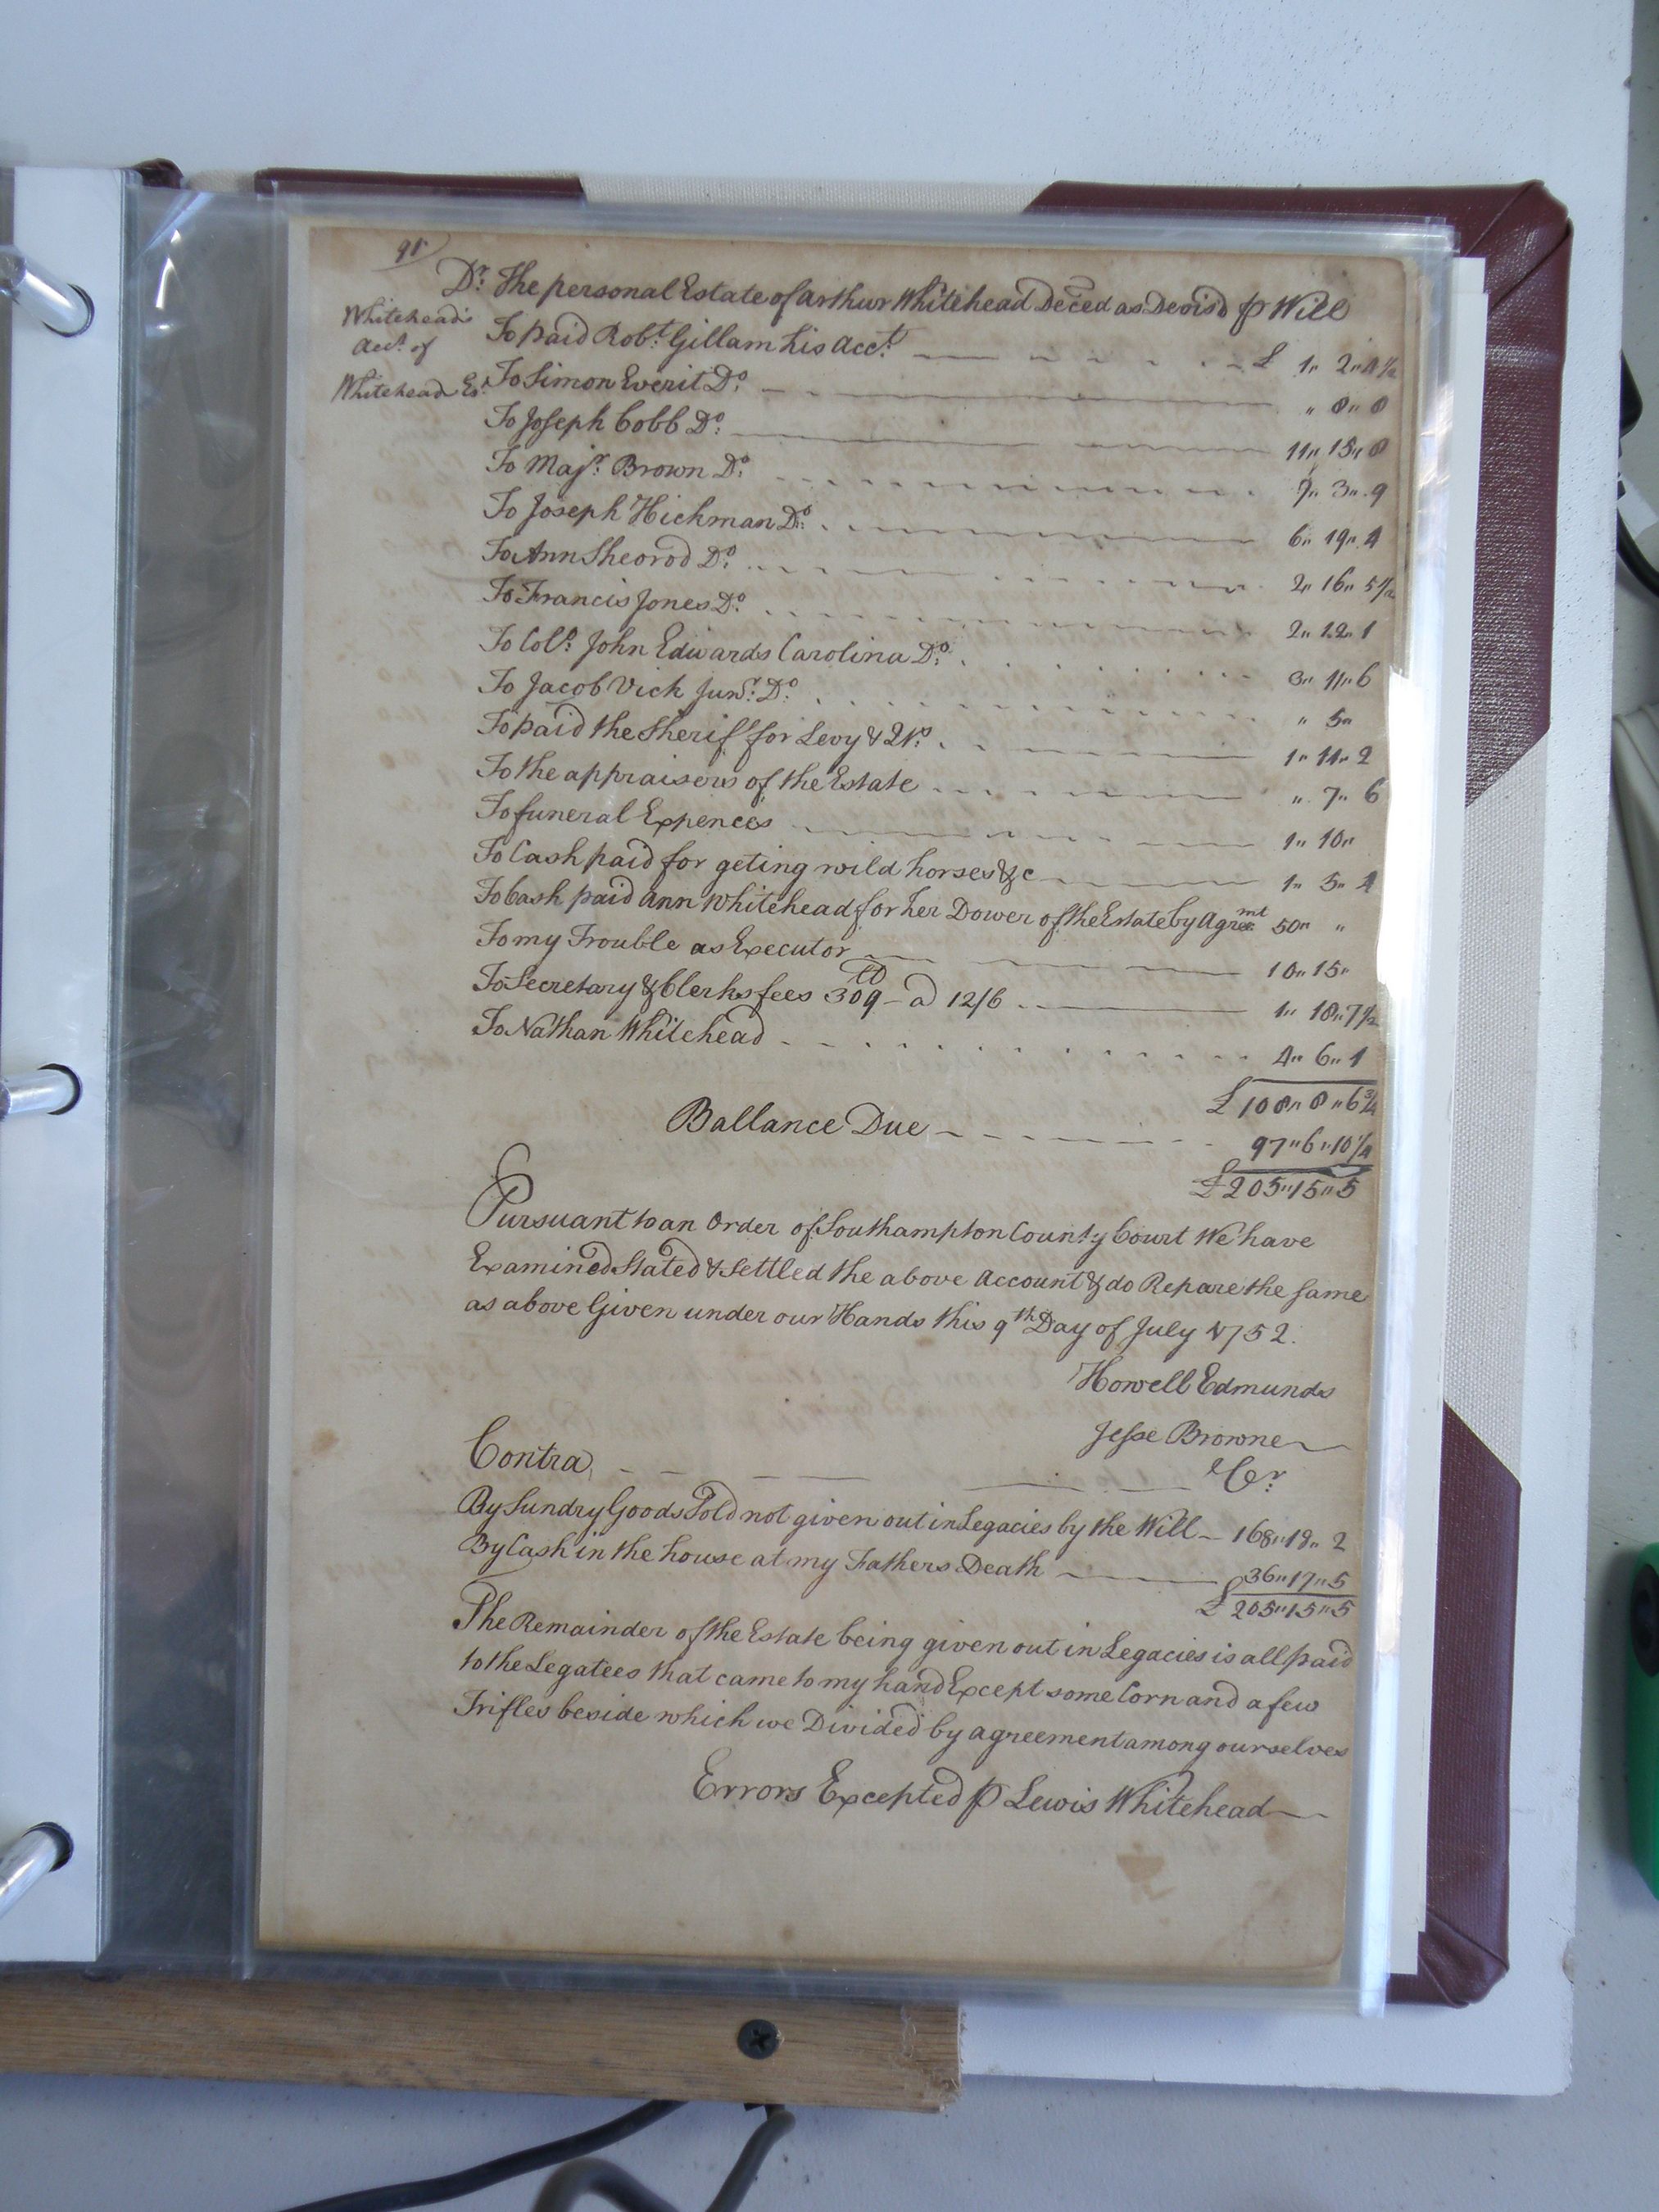 Dr. The personal Estate of Arthur Whitehead Deced as Devisd p Will
Whitehead's
Acct. of
Whitehead Est.
To paid Robt. Gillam his Acct. £ 1" 2" 4½
To Simon Everit Do. " 8" 8
To Joseph Cobb Do. 11" 15" 8
To Majr. Brown Do. 7" 3" 9
To Joseph Hickman Do. 6" 19" 4
To Ann Sheorod Do. 2" 16" 5½
To Francis Jones Do. 2" 12" 1
To Colo. John Edwards Carolina Do. 3" 11" 6
To Jacob Vick Junr. Do. " 5"
To paid the Sherif for Levy & 1" 11" 2
To the appraisers of the Estate " 7" 6
To funeral Expences 1" 10"
To Cash paid for geting wild horses &c 1" 5" 4
To Cash paid Ann Whitehead for her Dower of the Estate by Agremt 50" "
To my Trouble as Executor 10" 15"
To Secretary & Clerks fees 309 a 12/6 1" 18" 7½
To Nathan Whitehead 4" 6" 1
£ 108" 8" 6¾
Ballance Due 97" 6" 10¼
£ 205" 15" 5
Pursuant to an Order of Southampton County Court We have
Examined Stated & Settled the above Account & do Repare the same
as above Given under our Hands this 9th Day of July 1752.
Howell Edmunds
Jesse Browne
Contra Cr.
By Sundry Goods Sold not given out in Legacies by the Will 168" 18" 2
By Cash in the house at my Fathers Death 36" 17" 5
£ 205" 15" 5
The Remainder of the Estate being given out in Legacies is all paid
to the Legatees that came to my hand Except some Corn and a few
Trifles beside which we Divided by agreement among ourselves
Errors Excepted p Lewis Whitehead